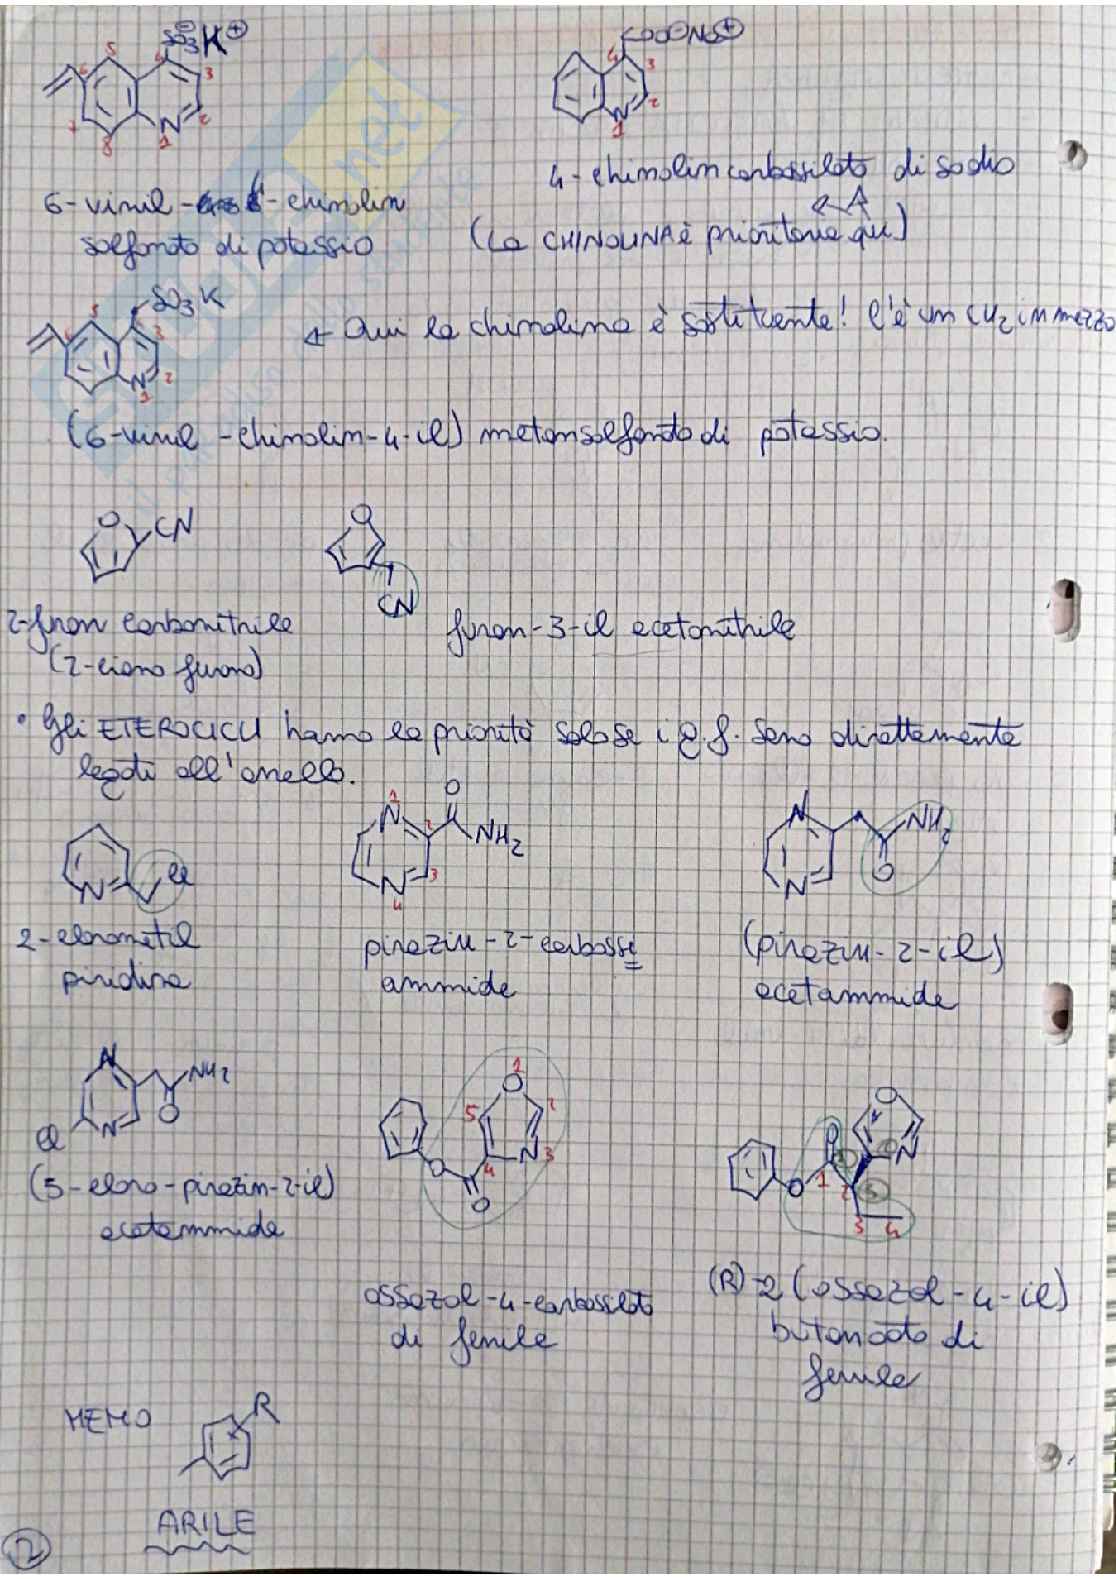 SO3⊖K⊕
COO⊖Na⊕
5 6 7 8 4 3 2 N 1
4 3 2 N 1
6-vinil-4-chinolin
solfonato di potassio
4-chinolincarbossilato di sodio
(La CHINOLINA è prioritaria qui)
SO3K
5 6 3 2 N 1
← Qui la chinolina è sostituente! C'è un CH2 in mezzo
(6-vinil-chinolin-4-il) metansolfonato di potassio.
O CN
O CN
2-furan carbonitrile
(2-ciano furano)
furan-3-il acetonitrile
• Gli ETEROCICLI hanno la priorità solo se i g.f. sono direttamente
legati all'anello.
N Cl
1 N 2 3 N 4 O NH2
N N O NH2
2-clorometil
piridina
pirazin-2-carbossi
ammide
(pirazin-2-il)
acetammide
N N Cl O NH2
O O 4 5 1 O 2 N 3
O O 1 2 3 4 O N
(5-cloro-pirazin-2-il)
acetammide
ossazol-4-carbossilato
di fenile
(R)-2(ossazol-4-il)
butanoato di
fenile
MEMO
R
ARILE
2
net